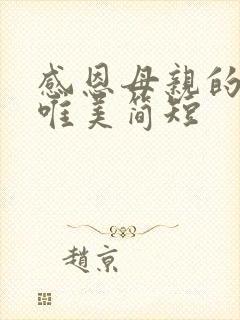 感恩母親的
唯美簡短
趙京